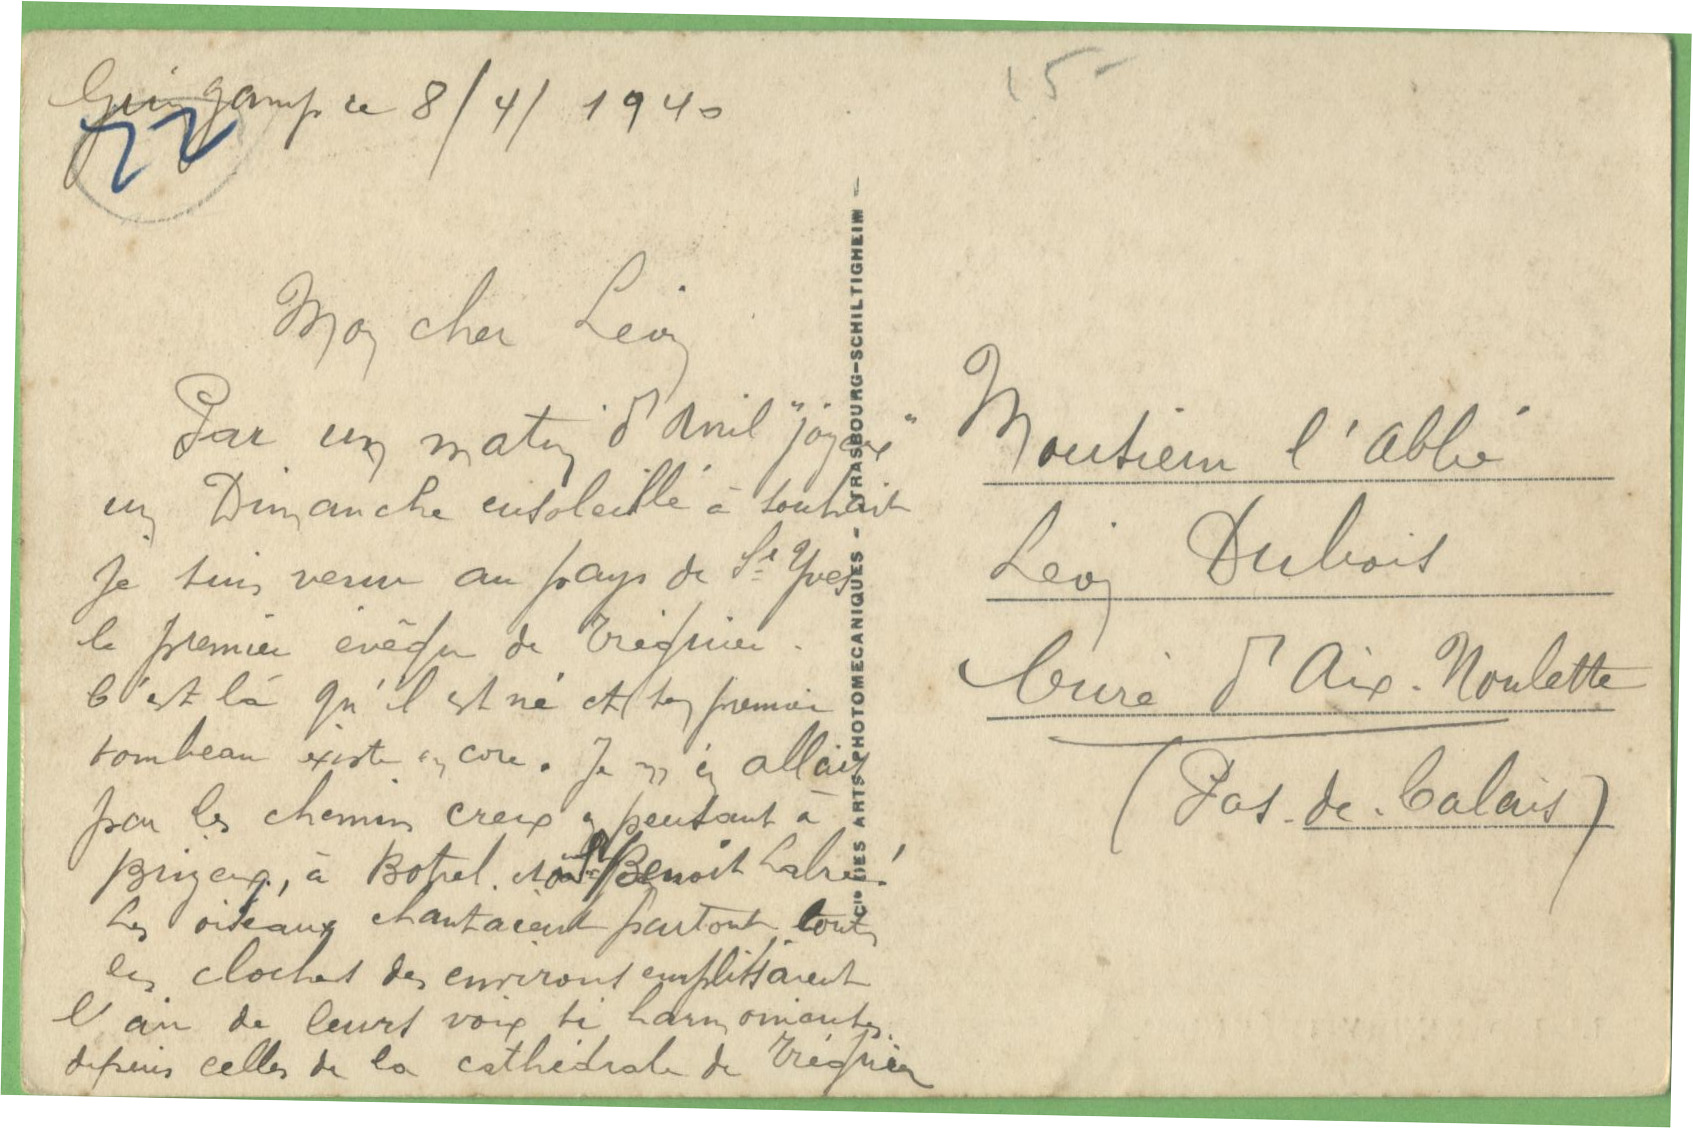 Guingamp le 8/4/1940
22
15-
Mon cher Léon
Par un matin d'Avril "joyeux"
un Dimanche ensoleillé à souhait
je suis venu au pays de St Yves
le premier évêque de Tréguier.
C'est là qu'il est né et son premier
tombeau existe encore. Je m'en allais
par les chemins creux en pensant à
Brizeux, à Botrel. et à St Benoit Labre!
Les oiseaux chantaient partout toutes
les cloches des environs emplissaient
l'air de leurs voix si harmonieuses.
depuis celles de la cathédrale de Tréguier
Cie DES ARTS PHOTOMECANIQUES - STRASBOURG-SCHILTIGHEIM -
Monsieur l'Abbé
Léon Dubois
Curé d'Aix-Noulette
(Pas-de-Calais)